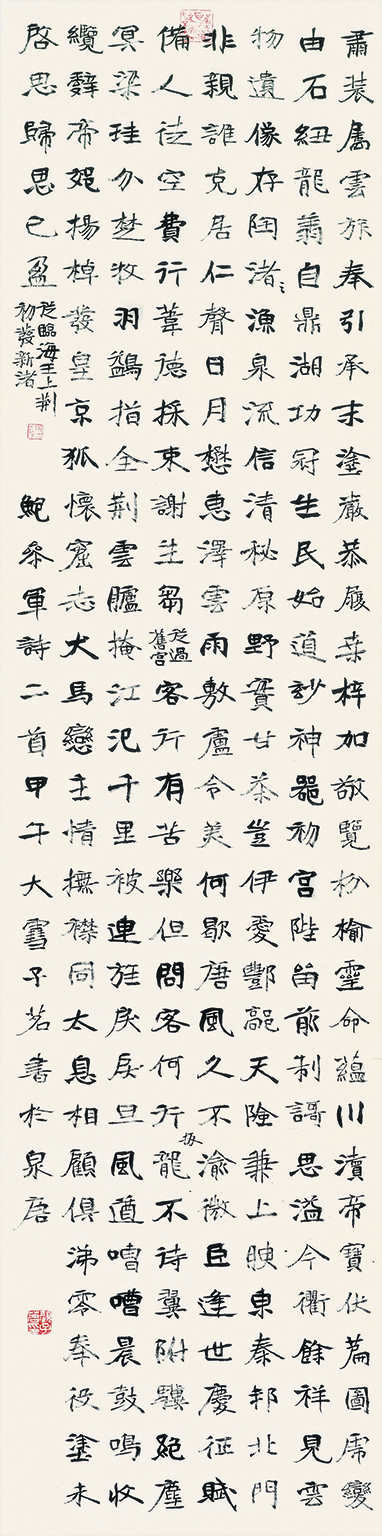 肅裝屬雲旅奉引承末塗嚴恭履桑梓加敬覽枌榆靈命蘊川瀆帝寶伏篇圖虎變
由石紐龍翥自鼎湖功冠生民始道妙神器初宮陛留前制謌思溢今衢餘祥見雲
物遺像存陶渚漁泉流信清秘原野實甘荼豈伊愛酆鄗天險兼上腴東秦邦北門
非親誰克居仁聲日月懋惠澤雲雨敷盧令美何歇唐風久不渝微臣逢世慶征賦
備人徒空費行葦德採束謝生芻從過舊宮客行有苦樂但問客何行扳龍不待翼附驥絕塵
冥梁珪分楚牧羽鷁指全荊雲艫掩江汜千里被連旌戾戾旦風遒嘈嘈晨鼓鳴收
纜辤帝郊揚棹發皇京狐懷窟志犬馬戀主情撫襟同太息相顧俱涕零奉役塗未
啓思歸思已盈
從臨海王上荊
初發新渚
鮑參軍詩二首甲午大雪子茗書於泉唐